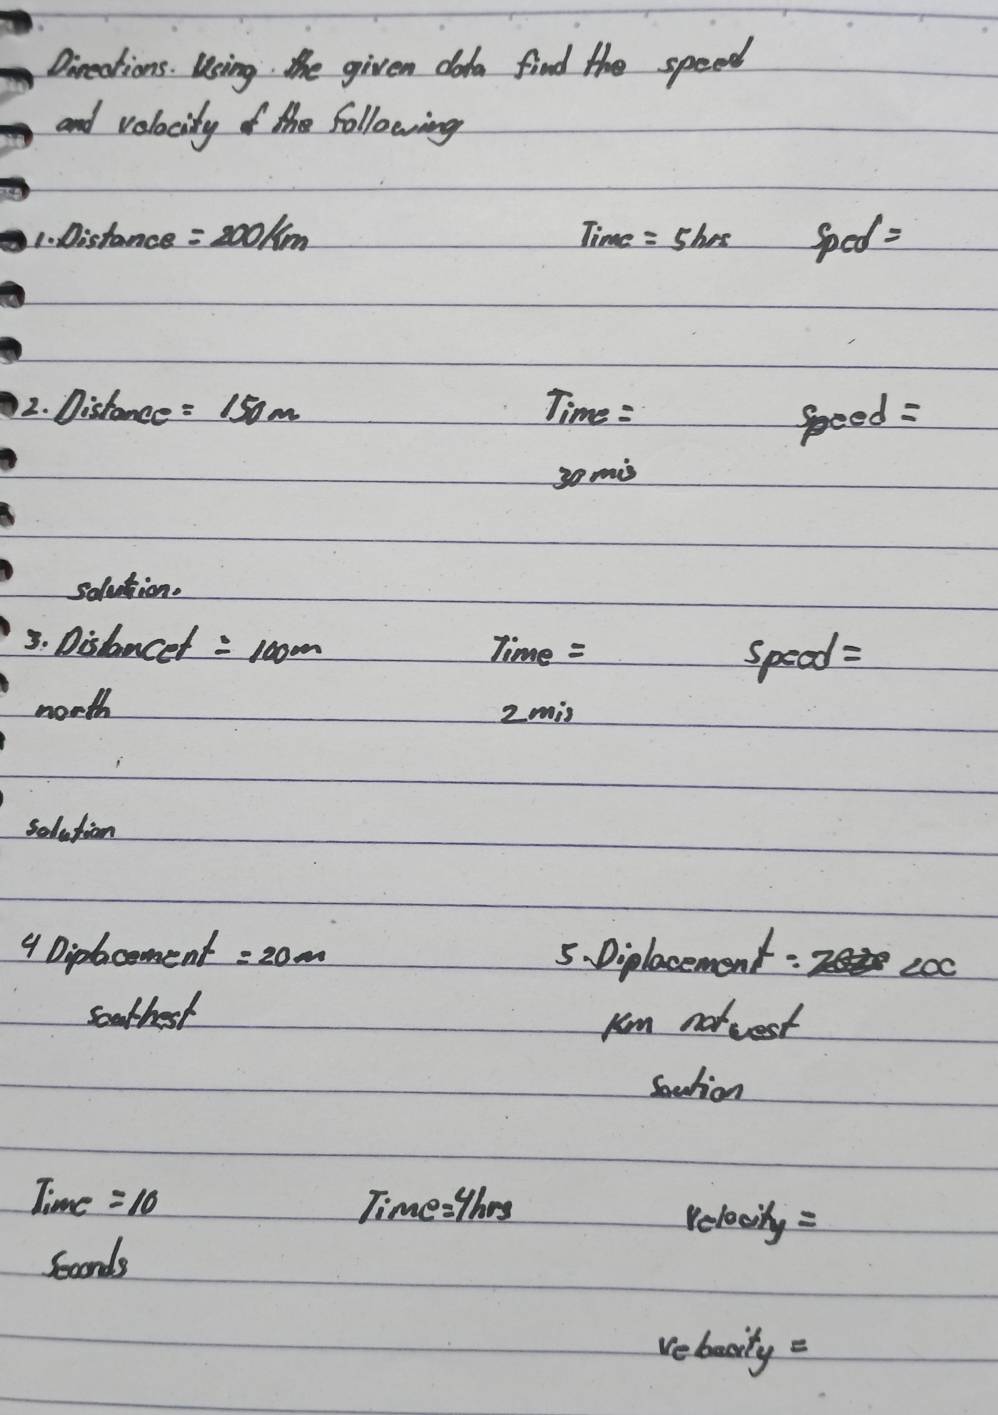 Directions. Using the given data find the speed
and velocity of the following
1. Distance = 200 Km Time = 5 hrs Sped =
2. Distance = 150 m Time = Speed =
30 mis
solution.
3. Distancet = 100m Time = Speed =
north 2 mis
solution
4 Diplacement = 20 m 5. Diplacement =
southest Km notwest
Soution
Time = 10 Time = 4hrs Velocity =
Seconds
velocity =